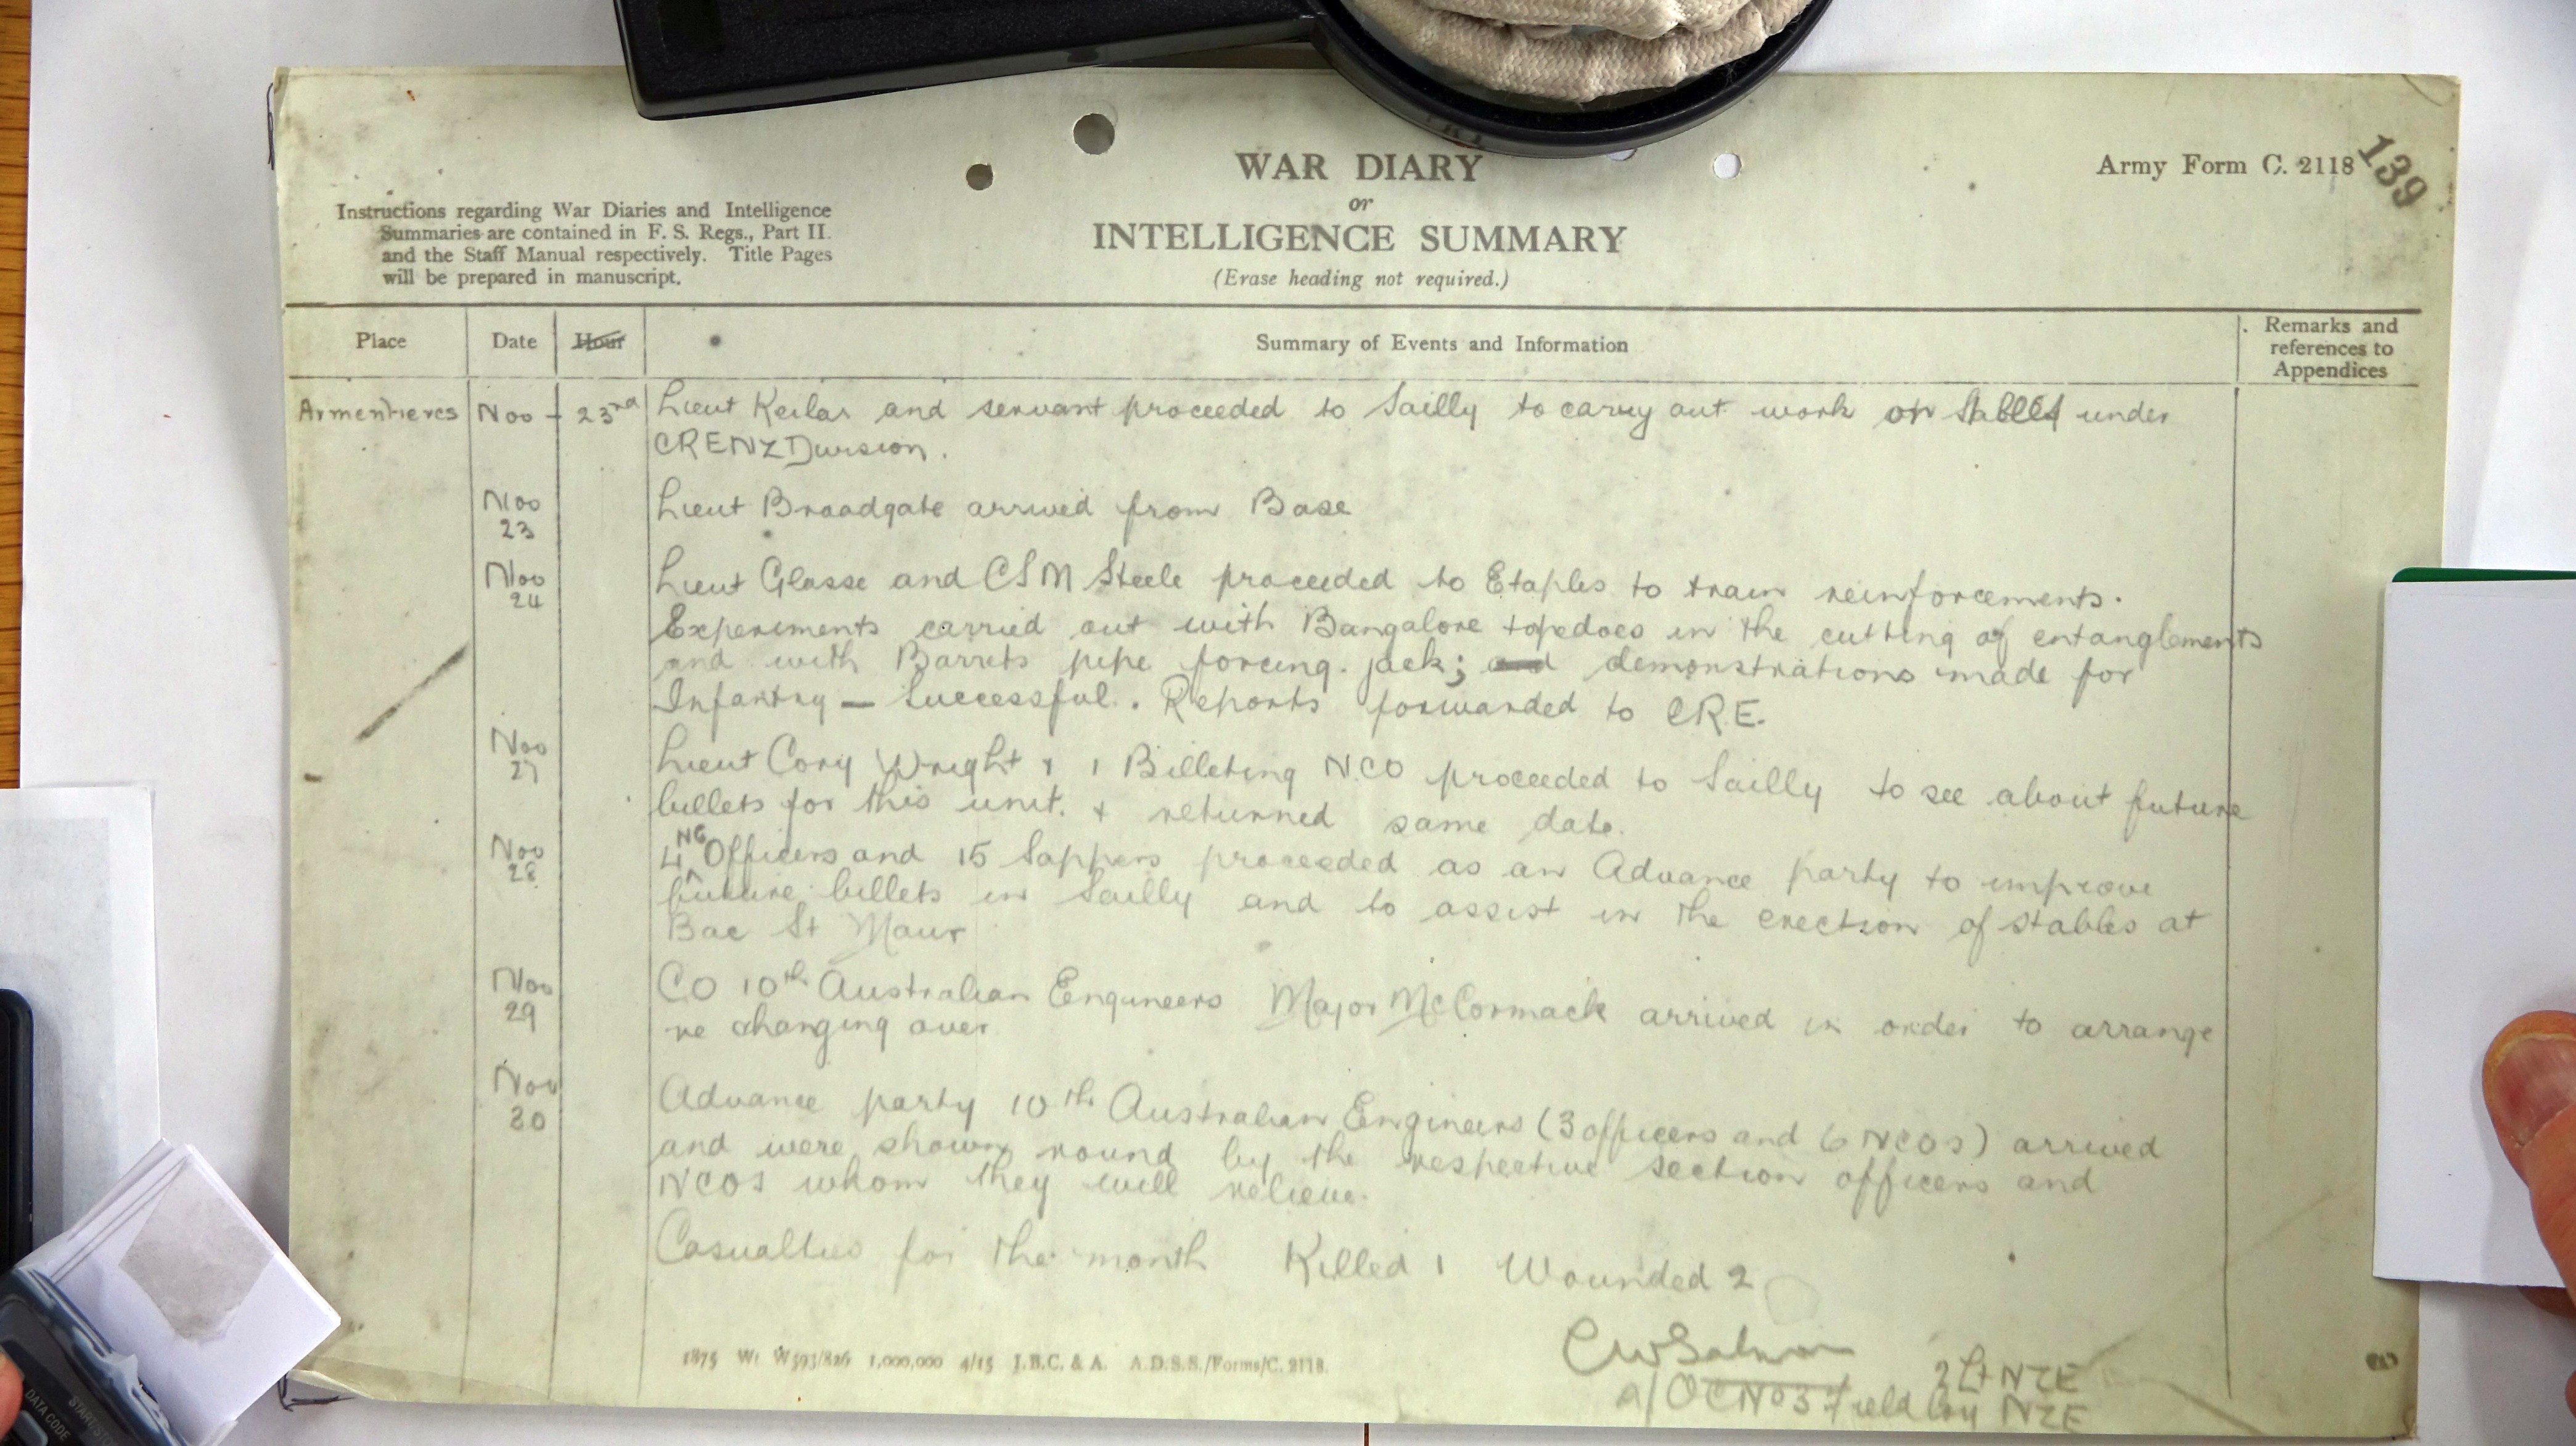 WAR DIARY
or
INTELLIGENCE SUMMARY
(Erase heading not required.)
Army Form C. 2118
139
Instructions regarding War Diaries and Intelligence
Summaries are contained in F. S. Regs., Part II.
and the Staff Manual respectively. Title Pages
will be prepared in manuscript.
Place Date Hour Summary of Events and Information Remarks and
references to
Appendices
Armentieres Nov - 23rd Lieut Keilar and servant proceeded to Sailly to carry out work on stables under
CRENZ Division.
Nov 23 Lieut Broadgate arrived from Base
Nov 24 Lieut Glasse and CSM Steele proceeded to Etaples to train reinforcements.
Experiments carried out with Bangalore topedoes in the cutting of entanglements
and with Barrets pipe forcing jack; and demonstrations made for
Infantry - Successful. Reports forwarded to CRE.
Nov 27 Lieut Cory Wright & 1 Billeting NCO proceeded to Sailly to see about future
billets for this unit. & returned same date.
Nov 28 4 NC Officers and 15 Sappers proceeded as an Advance party to improve
future billets in Sailly and to assist in the erection of stables at
Bac St Maur
Nov 29 CO 10th Australian Engineers Major McCormack arrived in order to arrange
re changing over
Nov 30 Advance party 10th Australian Engineers (3 officers and 6 NCOs) arrived
and were shown round by the respective section officers and
NCOs whom they will relieve.
Casualties for the month Killed 1 Wounded 2
CW Salmon
2 Lt NZE
a/OC No 3 Field Coy NZE
1875 Wt W593/826 1,000,000 4/15 J.B.C. & A. A.D.S.S./Forms/C. 2118.
DATA CODE